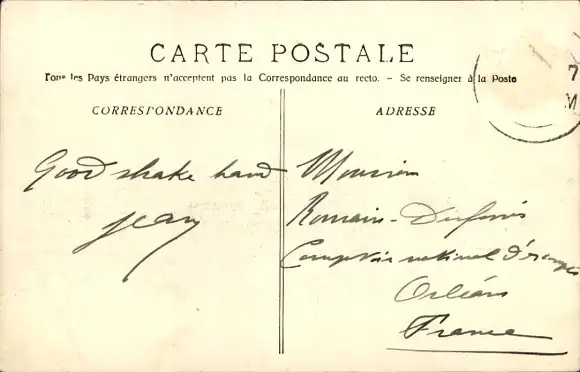 CARTE POSTALE
Tous les Pays étrangers n'acceptent pas la Correspondance au recto. - Se renseigner à la Poste
7
M
CORRESPONDANCE
ADRESSE
Good shake hand
Jean
Monsieur
Romain
Comptoir national d'
Orléans
France